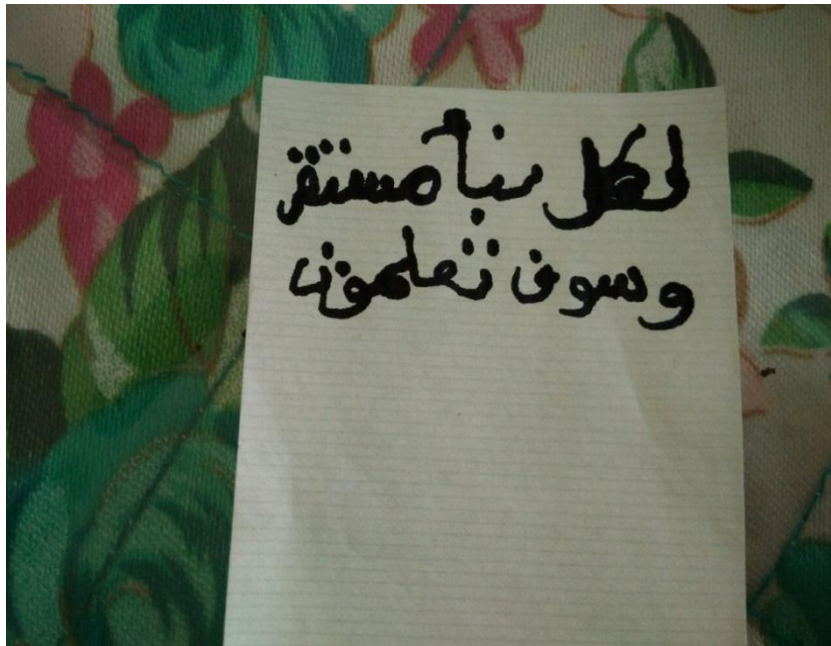 لكل نبأ مستقر
وسوف تعلمون